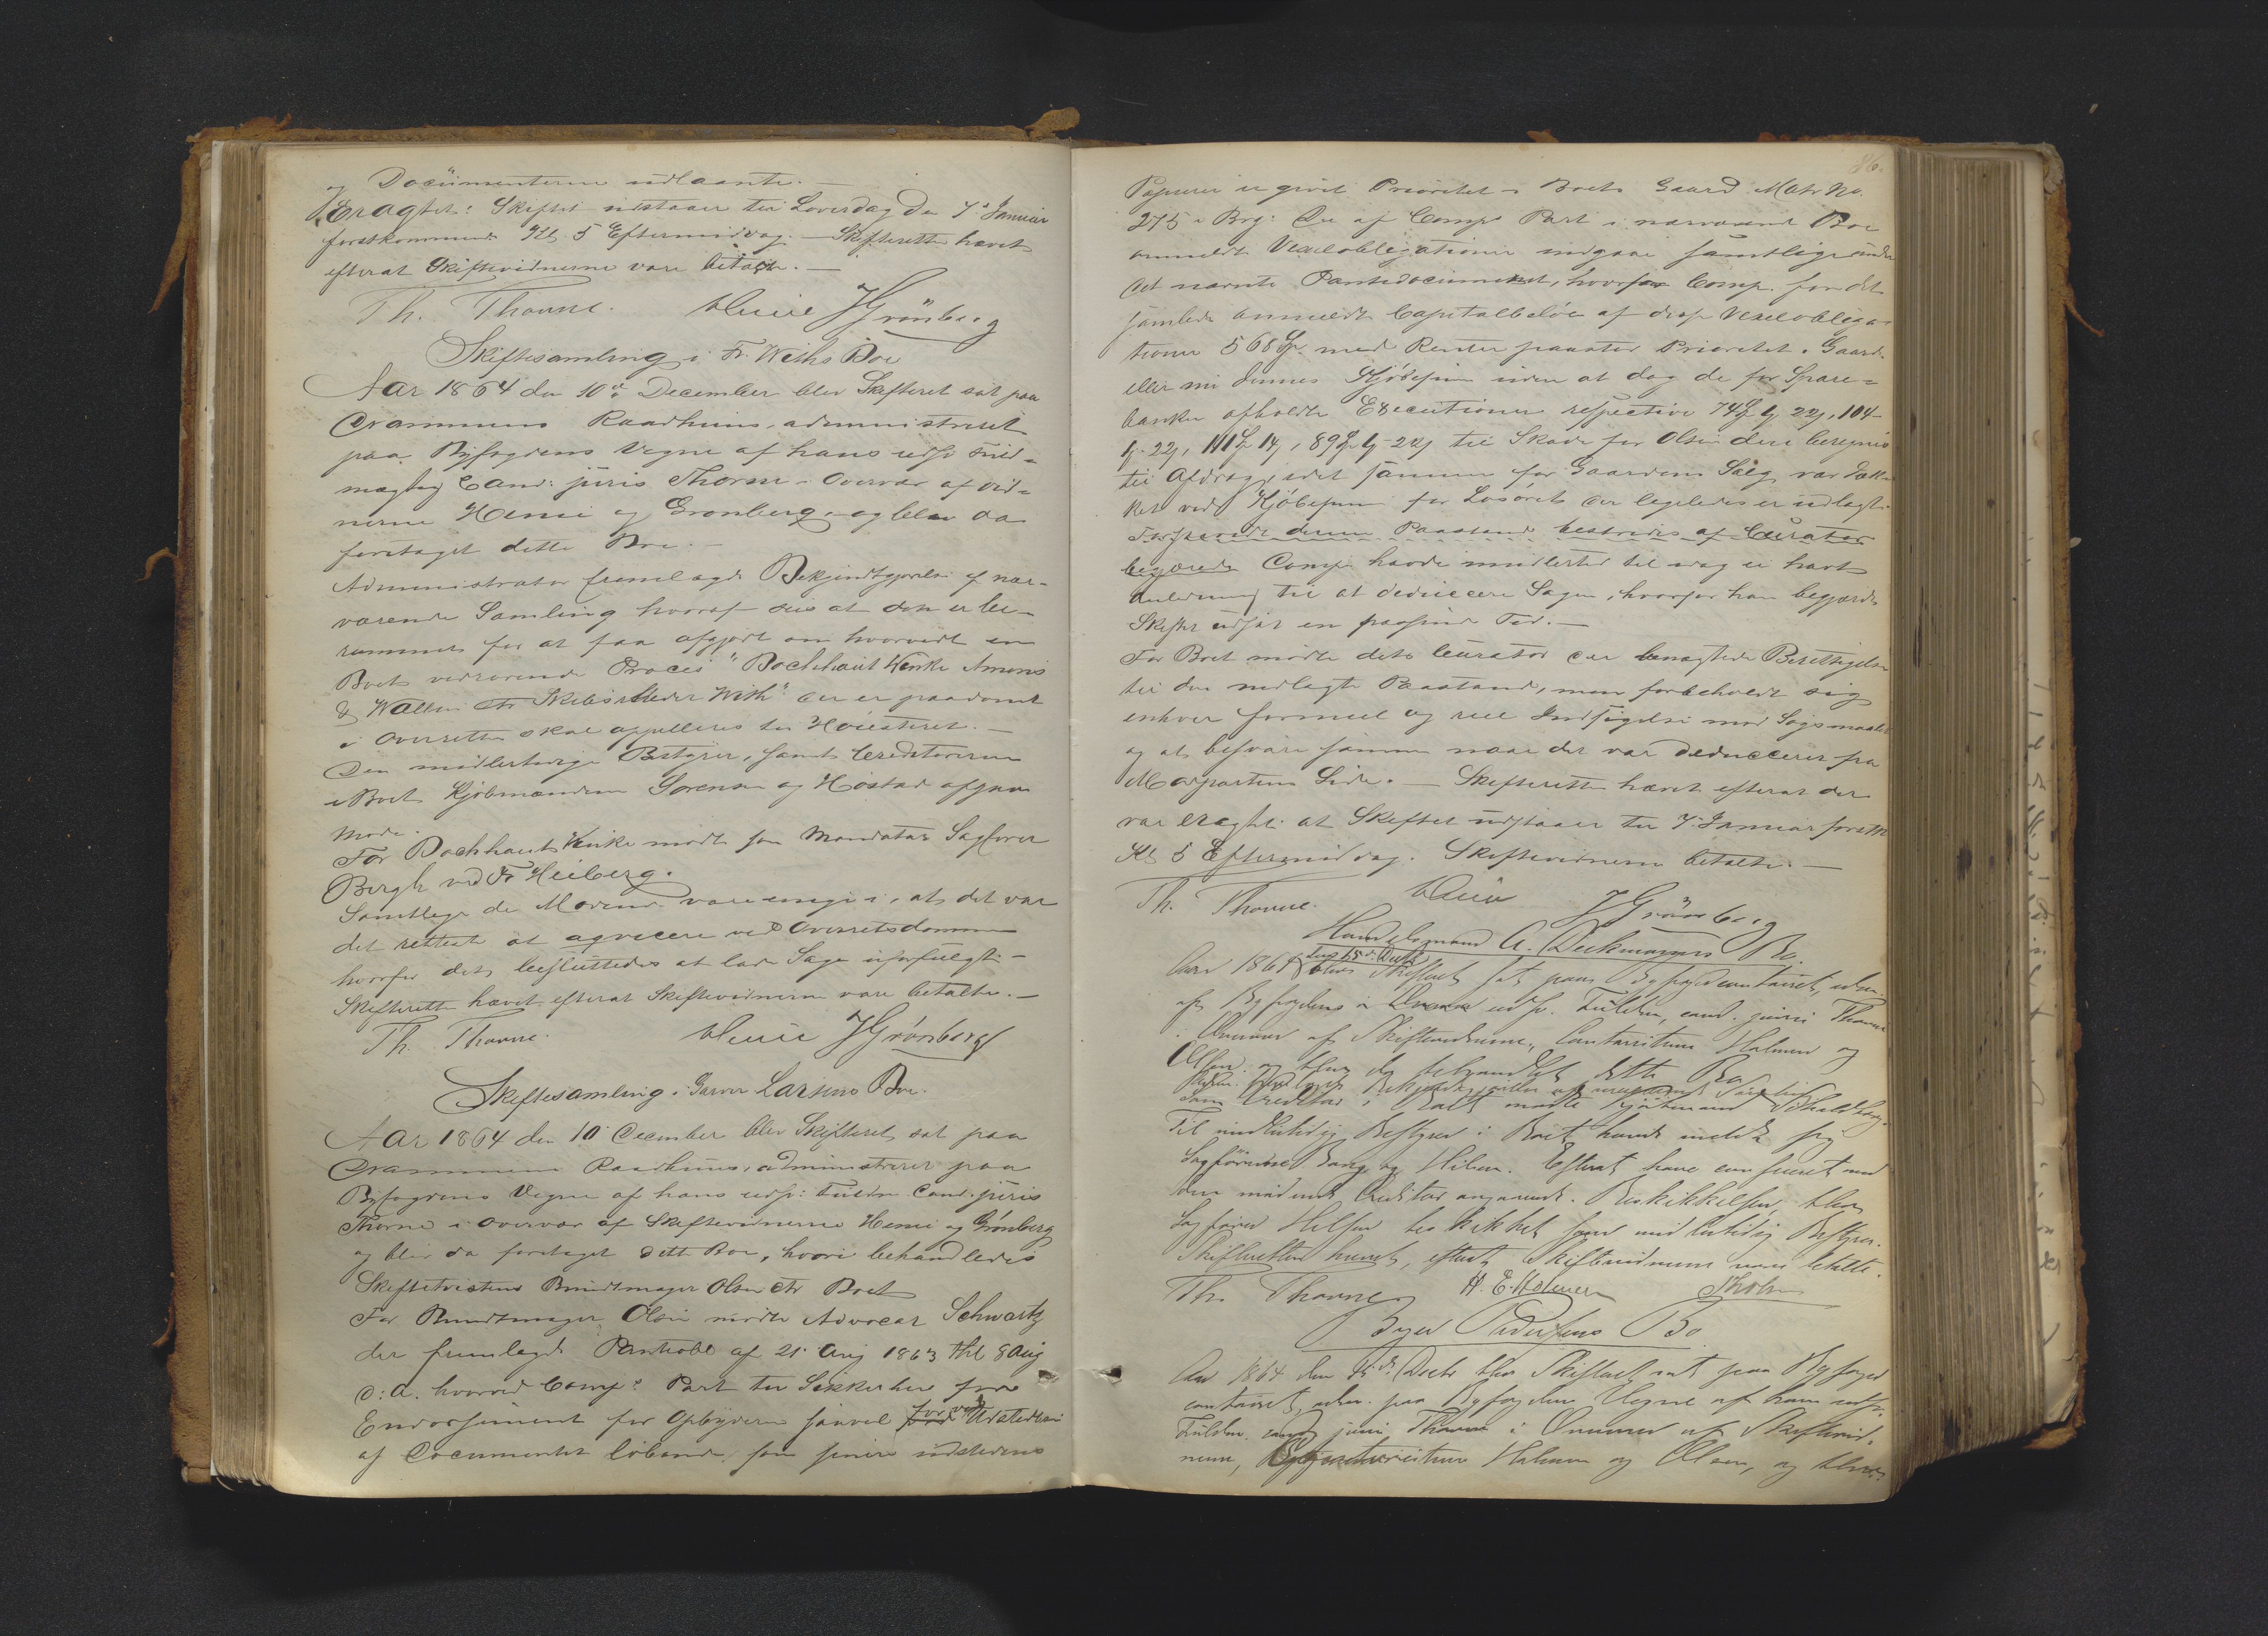 og Documenterne udlaante. —
Eragtet: Skiftet udstaaer til Løverdag den 7de Januar
førstkommende Kl. 5 Eftermiddag. — Skifteretten hævet
efterat Skiftevidnerne vare betalte. —
Th. Thorne. JGrönberg
Skiftesamling i Fr. Withs Boe
Aar 1864 den 10de December blev Skifteret sat paa
Drammens Raadhuus, administreret
paa Byfogdens Vegne af hans udsp Fuld-
mægtig Cand: juris Thorne i Overvær af Vid-
nerne og Grønberg, og blev da
foretaget dette Boe. —
Administrator fremlagde Bekjendtgjørelse af nær-
værende Samling hvoraf sees at den er be-
rammet for at faa afgjort om hvorvidt en
Boet vedrørende Proces "Bochhout Amons
& ctr Skibsrheder With" der er paadømt
i Overretten skal appelleres til Høiesteret. —
Den midlertidige Bestyrer, samt Creditorerne
i Boet Kjøbmændene Sørensen og Høstad afgav
Møde.
For Bochhout mødte som Mandatar Sagfører
Bergh ved Fr Heiberg.
Samtlige de Mødende vare enige i, at det var
det retteste at aqviescere ved Overretsdommen
hvorfor det besluttedes at lade Sagen uforfulgt. —
Skifteretten hævet efterat Skiftevidnerne vare betalte. —
Th. Thorne. JGrönberg
Skiftesamling i Garver Larsens Boe.
Aar 1864 den 10 December blev Skifteret sat paa
Drammens Raadhuus, administreret paa
Byfogdens Vegne af hans udsp: Fuldm. Cand. juris
Thorne i Overvær af Skiftevidnerne og Grønberg
og blev da foretaget dette Boe, hvori behandledes
Skiftetvisten Bundtmager Olsen ctr Boet
For Bundtmager Olsen mødte Advocat Schwartz
der fremlagde Panteobl af 21 Aug 1863 thl 8 Aug
d: a. hvorved Comp: Part til Sikkerhed for
Endossement for Opbyderen saavel for ved Udstedelsen
af Documentet løbende, som senere udstedende
Papirer er givet Prioritet i Boets Gaard Matr No.
275 i Brg: De af Comp: Part i nærværende Boe
anmeldte Vexelobligationer indgaae samtlige under
det nævnte Pantedocument, hvorfor Comp. for det
samlede anmeldte Capitalbeløb af disse Vexelobliga-
tioner 568 Sp. med Renter paastod Prioritet i Gaard.
eller nu dennes Kjøbesum uden at dog de for Spare-
banken afholdte Executioner respective 74 22, 104
22, 111 14, 89 22 til Skade for Olsen bere beregnes
til Afdrag, idet samme før Gaardens Salg var dæk-
ket ved Kjøbesum for Løsøret der ligeledes er udlagt.
denne Paastand bestrides af Curator
begjærede Comp: havde imidlertid til idag ei havt
Anledning til at deducere Sagen, hvorfor han begjærede
Skiftet udsat en passende Tid. —
For Boet mødte dets Curator der benægtede Berettigelsen
til den nedlagte Paastand, men forbeholdt sig
enhver formel og reel Indsigelse mod Sagsmaalet
og at besvare samme naar det var deduceret fra
Modpartens Side. — Skifteretten hævet efterat det
var eragtet at Skiftet udstaaer til 7. Januar førstk
Kl 5 Eftermiddag. Skiftevidnerne betalte. —
Th. Thorne. JGrönberg
Handelsmand A. Bo.
Aar 1864 den 15de Decbr blev Skifteret sat paa Byfogedcontoiret, adm.
af Byfogdens i Drammen udsp. Fuldm., cand. juris Thorne
i Overvær af Skiftevidnerne, Contoiristerne Holmen og
Olsen. og blev da behandlet dette Bo
Som Creditor i Boet mødte Kjøbmand
Til midlertidig Bestyrer i Boet havde meldt sig
Sagførerne Bang og Hilsen. Efterat have confereret med
den mødende Creditor angaaende Beskikkelsen, blev
Sagfører Hilsen beskikket som midlertidig Bestyrer.
Skifteretten hævet, efterat Skiftevidnerne vare betalte.
Th. Thorne H. E. Holmen
Pedersens Bo
Aar 1864 den 15de Decbr blev Skifteret sat paa Byfoged
contoiret, adm. paa Byfogdens Vegne af hans udsp.
Fuldm. cand juris Thorne i Overvær af Skiftevid-
nerne, Contoiristerne Holmen og Olsen, og blev